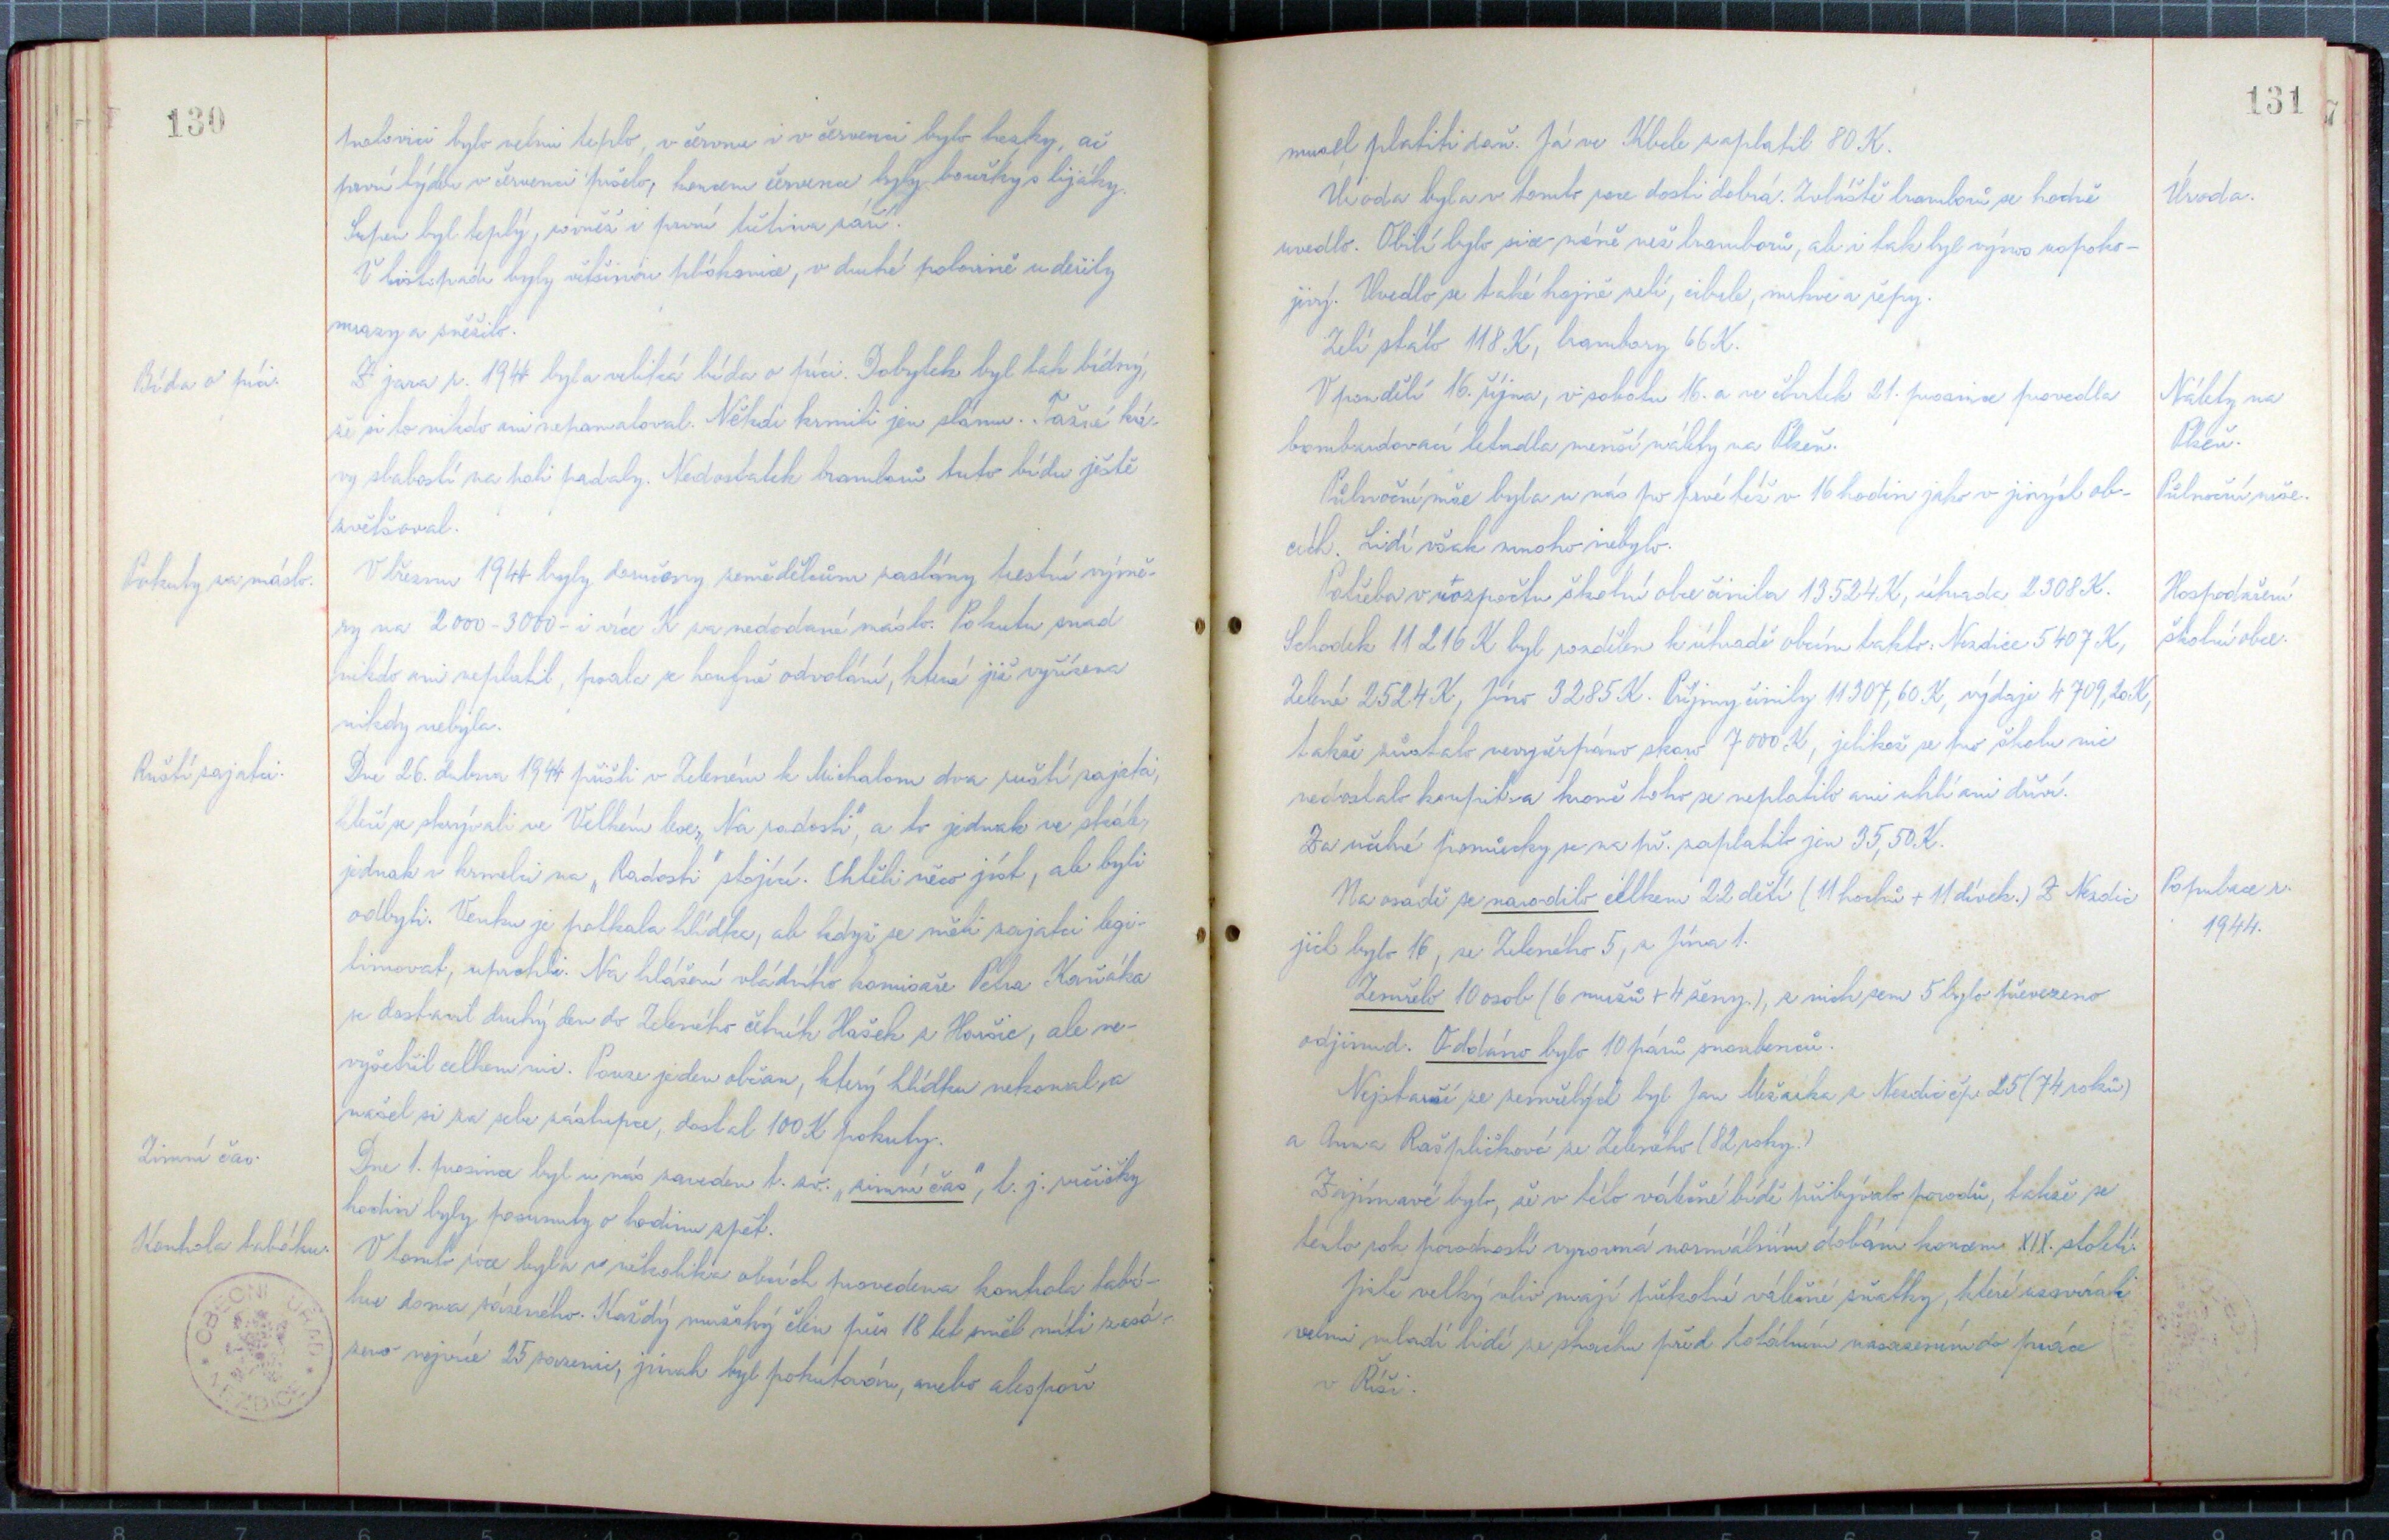 130
polovici bylo velmi teplo, v červnu i v červenci bylo hezky, ač
první týden v červenci pršelo, koncem července byly bouřky s lijáky.
Srpen byl teplý, rovněž i první třetina září.
V listopadu byly většinou plískanice, v druhé polovině udeřily
mrazy a sněžilo.
Bída o píci.
Z jara r. 1944 byla veliká bída o píci. Dobytek byl tak bídný,
že si to nikdo ani nepamatoval. Někdi krmili jen slámu. Tažné krá-
vy slabostí na poli padaly. Nedostatek bramborů tuto bídu ještě
zvětšoval.
Pokuty za máslo.
V březnu 1944 byly doručeny zemědělcům zaslány trestní výmě-
ry na 2000-3000- i více K za nedodané máslo. Pokutu snad
nikdo ani neplatil, poslala se houfně odvolání, která již vyřízena
nikdy nebyla.
Ruští zajatci.
Dne 26. dubna 1944 přišli v Zeleném k Michalom dva ruští zajatci,
kteří se skrývali ve Velkém lese „Na radosti", a to jednak ve skále,
jednak v krmelci na „Radosti" stojící. Chtěli něco jíst, ale byli
odbyti. Venku je potkala hlídka, ale když se měli zajatci legi-
timovat, uprchli. Na hlášení vládního komisaře Petra Kořáka
se dostavil druhý den do Zeleného četník Hašek z Horšic, ale ne-
vyšetřil celkem nic. Pouze jeden občan, který hlídku nekonal a
našel si za sebe zástupce, dostal 100 K pokuty.
Zimní čas.
Dne 1. prosince byl u nás zaveden t. zv. „zimní čas", t. j. ručičky
hodin byly posunuty o hodinu zpět.
Kontrola tabáku.
V tomto roce byla v několika obcích provedena kontrola tabá-
ku doma sázeného. Každý mužský člen přes 18 let směl míti zasá-
zeno nejvíce 25 sazenic, jinak byl pokutován, anebo alespoň
OBECNÍ ÚŘAD
NEZDICE
131
musel platiti daň. Já ve Kbele zaplatil 80 K.
Úroda.
Úroda byla v tomto roce dosti dobrá. Zvláště bramborů se hodně
uvedlo. Obilí bylo sice méně než bramborů, ale i tak byl výnos uspoko-
jivý. Uvedlo se také hojně zelí, cibule, mrkve a řepy.
Zelí stálo 118 K, brambory 66 K.
Nálety na
Plzeň.
V pondělí 16. října, v sobotu 16. a ve čtvrtek 21. prosince provedla
bombardovací letadla menší nálety na Plzeň.
Půlnoční mše.
Půlnoční mše byla u nás po prvé též v 16 hodin jako v jiných ob-
cích. Lidí však mnoho nebylo.
Hospodaření
školní obce.
Potřeba v rozpočtu školní obce činila 13524 K, úhrada 2308 K.
Schodek 11216 K byl rozdělen k úhradě obcím takto: Nezdice 5407 K,
Zelené 2524 K, Jíno 3285 K. Příjmy činily 11307,60 K, výdaje 4709,20 K,
takže zůstalo nevyčerpáno skoro 7000 K, jelikož se pro školu nic
nedostalo koupit a kromě toho se neplatilo ani uhlí ani dříví.
Za učebné pomůcky se na př. zaplatilo jen 35,50 K.
Populace r.
1944.
Na osadě se narodilo celkem 22 dětí (11 hochů + 11 dívek.) Z Nezdic
jich bylo 16, ze Zeleného 5, z Jína 1.
Zemřelo 10 osob (6 mužů + 4 ženy.), z nich sem 5 bylo převezeno
odjinud. Oddáno bylo 10 párů snoubenců.
Nejstarší ze zemřelých byl Jan z Nezdic čp. 25 (74 roků)
a Anna Rašpličková ze Zeleného (82 roky.)
Zajímavé bylo, že v této válečné bídě přibývalo porodů, takže se
tento rok porodností vyrovná normálním dobám koncem XIX. století.
Jistě velký vliv mají překotné válečné sňatky, které uzavírali
velmi mladí lidé ze strachu před totálním nasazením do práce
v Říši.